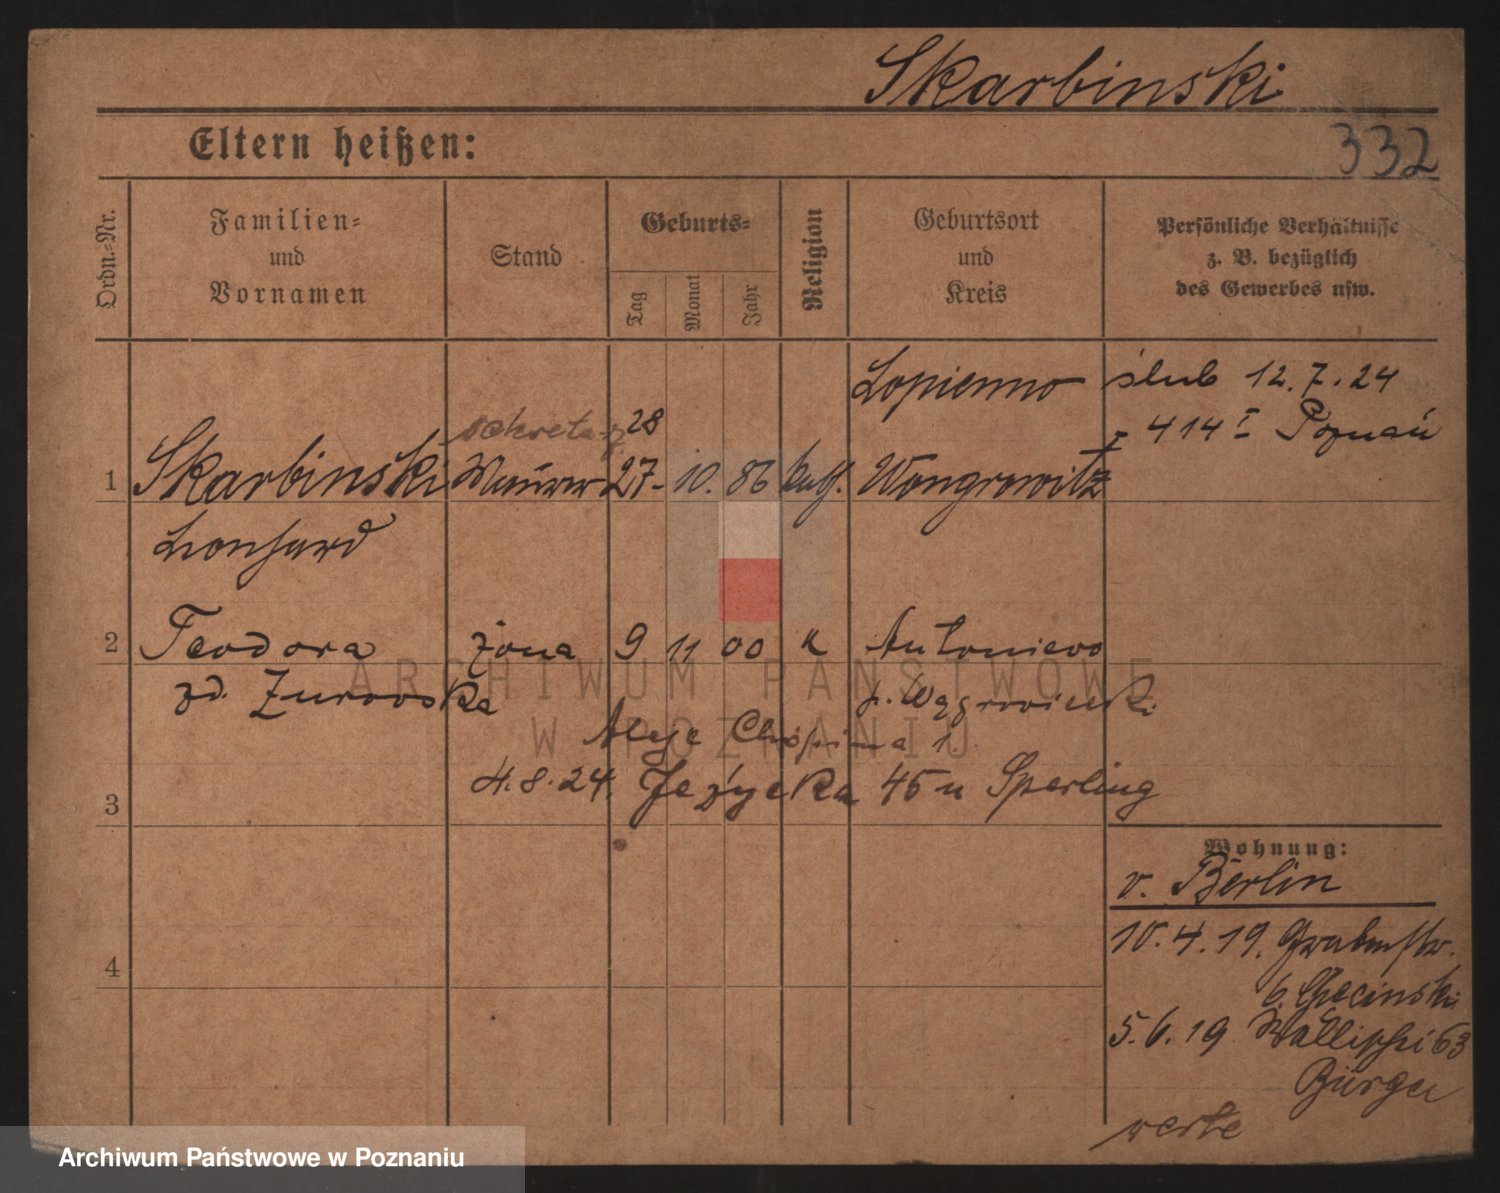 Skarbinski
332
Eltern heißen:
Ordn.-Nr.
Familien-
und
Vornamen
Stand
Geburts-
Tag
Monat
Jahr
Religion
Geburtsort
und
Kreis
Persönliche Verhältnisse
z. B. bezüglich
des Gewerbes usw.
Lopienno
ślub 12.7.24
414 I Poznań
sekretarz
28
1 Skarbinski Maurer 27. 10. 86 kath. Wongrowitz
Leonhard
2 Teodora żona 9 11 00 k Antoniewo
zd. Żurowska p. Wągrowiecki
ARCHIWUM PAŃSTWOWE
W POZNANIU
Aleje Chopina 1.
3 4.8.24. Jeżycka 45 u Sperling
Wohnung:
v. Berlin
10.4.19. Grabenstr.
4
6.
5.6.19 Wallischei 63
Bürger
verte
Archiwum Państwowe w Poznaniu